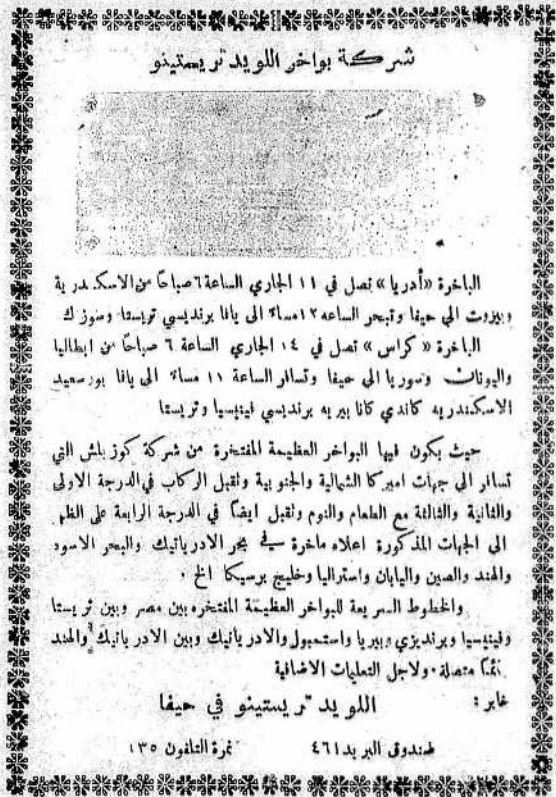 شركة بواخر اللويد تريستينو
الباخرة «أدريا» تصل في ١١ الجاري الساعة ٦ صباحاً من الاسكندرية
وبيروت الى حيفا وتبحر الساعه ١٢ مساءً الى يافا برنديسي تريستا وسوزك
الباخرة «كراس» تصل في ١٤ الجاري الساعة ٦ صباحاً من ايطاليا
واليونان وسوريا الى حيفا وتسافر الساعة ١١ مساءً الى يافا بورسعيد
الاسكندريه كاندي كانا بيريه برنديسي فينيسيا وتريستا
حيث يكون فيها البواخر العظيمة المفتخرة من شركة كوزبلش التي
تسافر الى جهات اميركا الشمالية والجنوبية وتقبل الركاب في الدرجة الاولى
والثانية والثالثة مع الطعام والنوم وتقبل ايضاً في الدرجة الرابعة على الظهر
الى الجهات المذكورة اعلاه ماخرة في بحر الادرياتيك والبحر الاسود
والهند والصين واليابان واستراليا وخليج برسيكا الخ ٠
والخطوط السريعة للبواخر العظيمة المفتخره بين مصر وبين تريستا
وفينيسيا وبرنديزي وبيريا واستمبول والادرياتيك وبين الادرياتيك والهند
متصلة ٠ ولاجل التعليمات الاضافية
خابر :
اللويد تريستينو في حيفا
صندوق البريد ٤٦١
نمرة التلفون ١٣٥